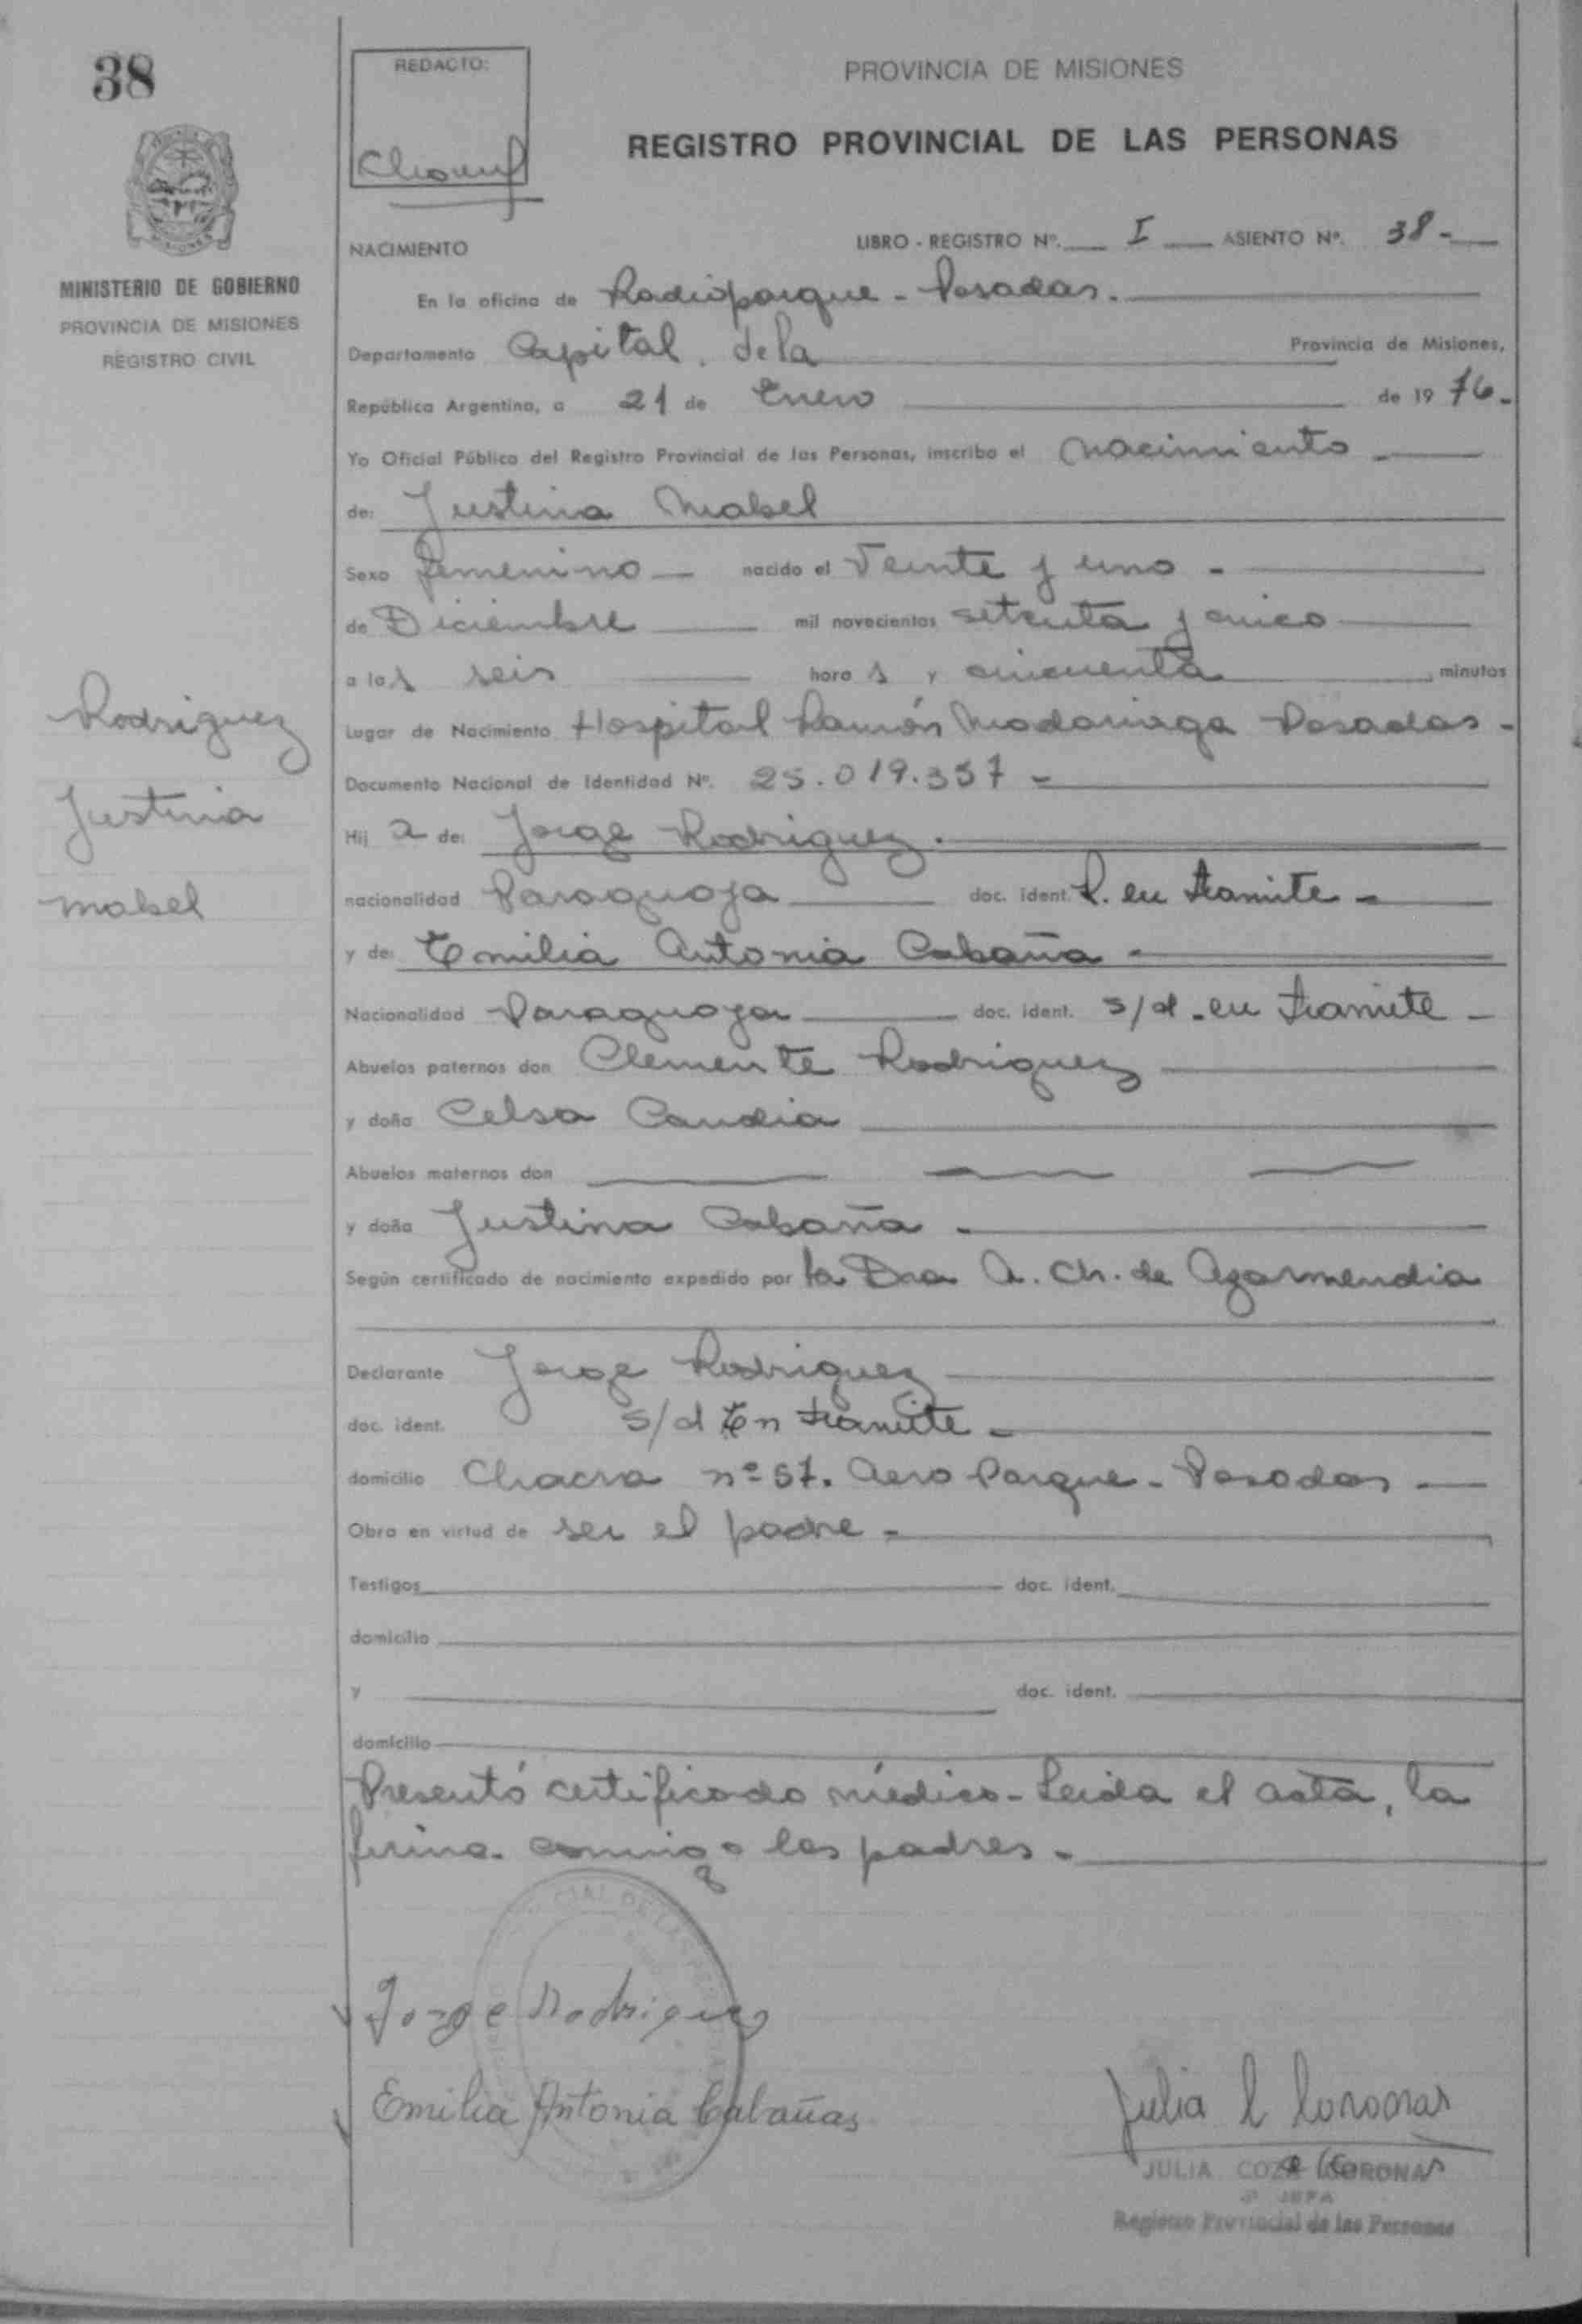 38
REDACTO:
PROVINCIA DE MISIONES
REGISTRO PROVINCIAL DE LAS PERSONAS
MINISTERIO DE GOBIERNO
PROVINCIA DE MISIONES
REGISTRO CIVIL
NACIMIENTO
LIBRO - REGISTRO Nº. I ASIENTO Nº. 38 -
En la oficina de Radioparque - Posadas.
Departamento Capital. de la Provincia de Misiones,
República Argentina, a 21 de Enero de 19 76 -
Yo Oficial Público del Registro Provincial de las Personas, inscribo el Nacimiento -
de: Justina Mabel
Sexo femenino - nacido el Veinte y uno -
de Diciembre mil novecientos setenta y cinco
a las seis hora s y cincuenta minutos
Lugar de Nacimiento Hospital Ramón Madariaga Posadas -
Documento Nacional de Identidad Nº. 25.019.357 -
Rodriguez
Justina
Mabel
Hij a de: Jorge Rodriguez.
nacionalidad Paraguaya doc. ident. P. en tramite -
y de: Emilia Antonia Cabaña -
Nacionalidad Paraguaya doc. ident. s/d - en tramite -
Abuelos paternos don Clemente Rodriguez
y doña Celsa Candia
Abuelos maternos don
y doña Justina Cabaña -
Según certificado de nacimiento expedido por la Dra A. Ch. de Agarmendia
Declarante Jorge Rodriguez
doc. ident. s/d En tramite -
domicilio Chacra nº 57. Aero Parque - Posadas -
Obra en virtud de ser el padre -
Testigos doc. ident.
domicilio
y doc. ident.
domicilio
Presentó certificado médico - Leida el acta, la
firma conmigo los padres -
Jorge Rodriguez
Emilia Antonia Cabañas
Julia Coronas
JULIA CORONAS
JEFA
Registro Provincial de las Personas